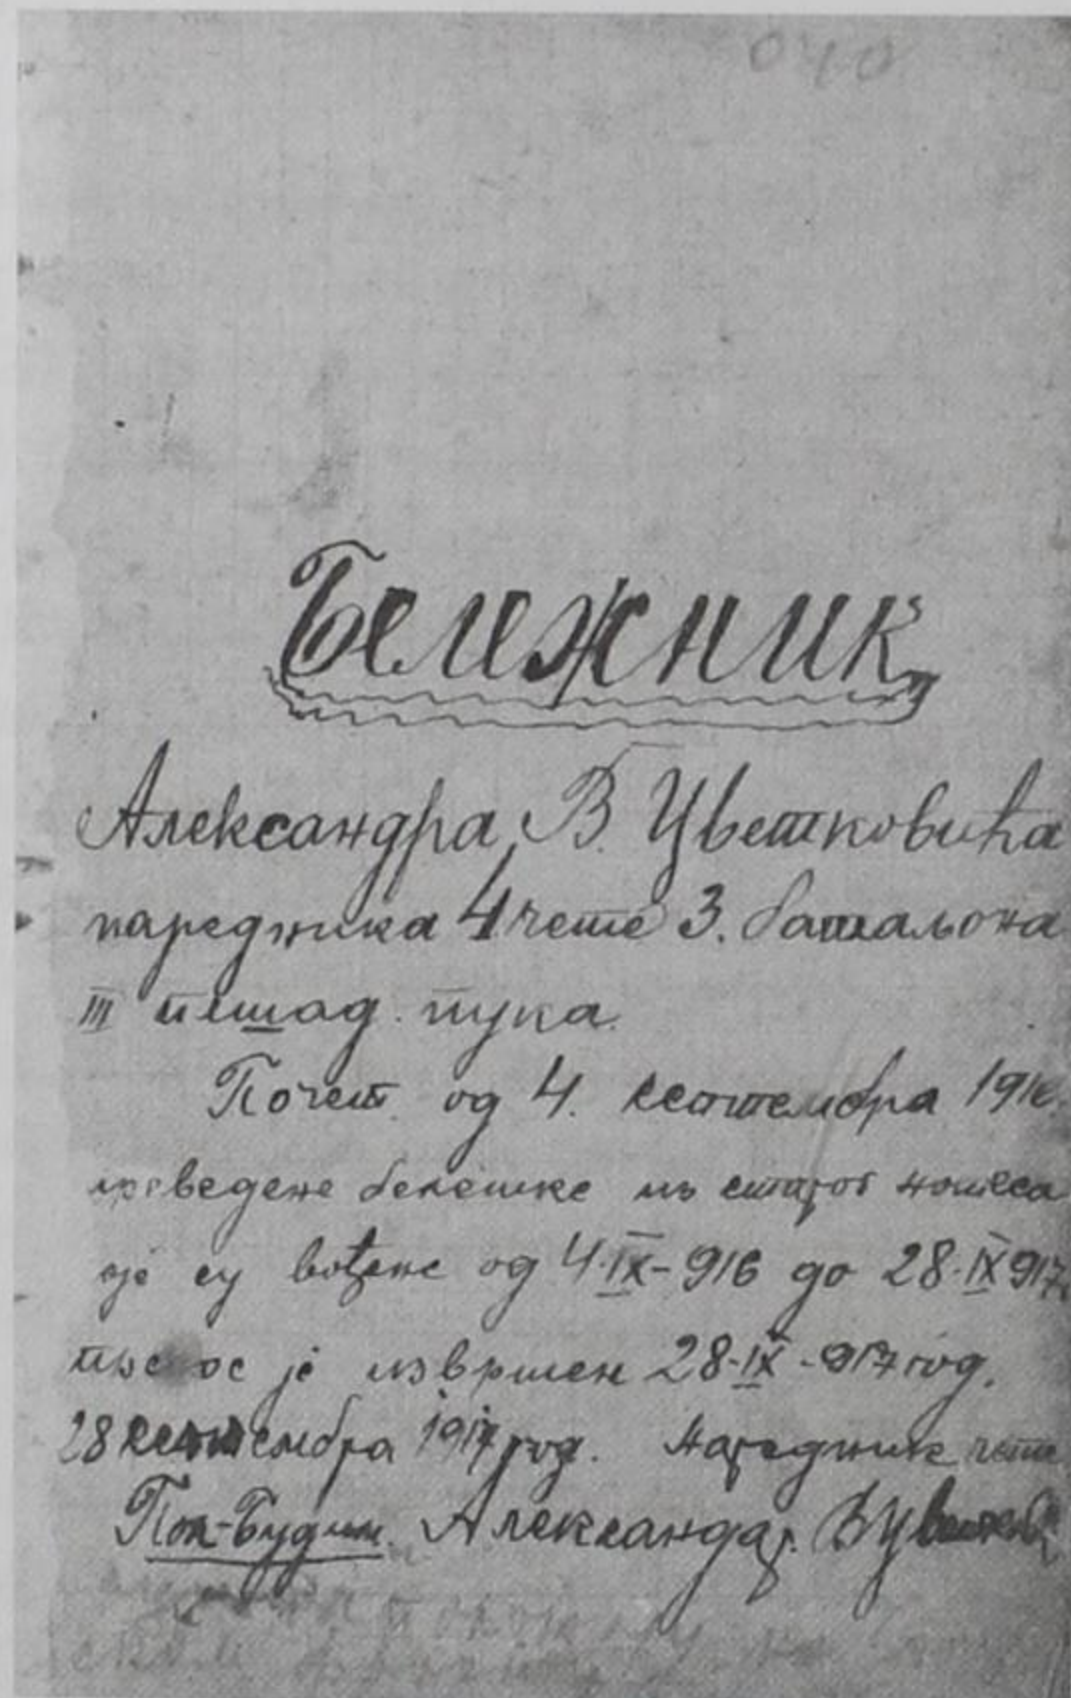 040
Бележник
Александра В. Цветковића
наредника 4 чете 3. батаљона
III пешад. пука.
Почет. од 4. септембра 1916.
преведене белешке из старог нотеса
је су вођене од 4-IX-916 до 28-IX 917.
пренос је извршен 28-IX-917 год.
28 септембра 1917 год. Наредник чете
Поп-Будим. Александар. В Цветков